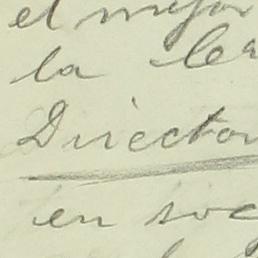 el mejor
la
Director
en soc